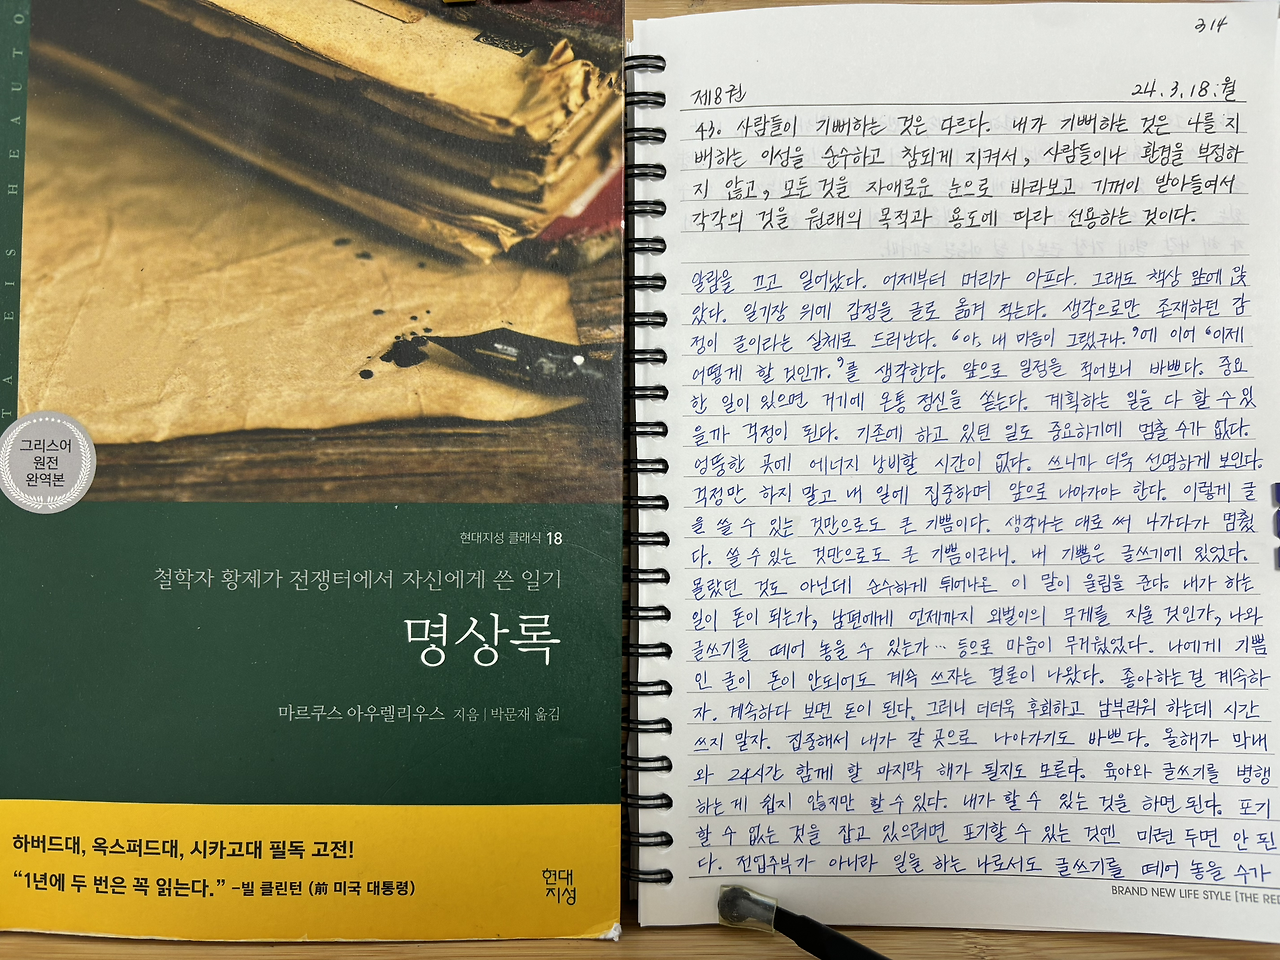 TA EIS HEAUTO
그리스어
원전
완역본
현대지성 클래식 18
철학자 황제가 전쟁터에서 자신에게 쓴 일기
명상록
마르쿠스 아우렐리우스 지음 | 박문재 옮김
하버드대, 옥스퍼드대, 시카고대 필독 고전!
“1년에 두 번은 꼭 읽는다.” –빌 클린턴 (前 미국 대통령)
현대
지성
314
제8권 24.3.18.월
43. 사람들이 기뻐하는 것은 다르다. 내가 기뻐하는 것은 나를 지
배하는 이성을 순수하고 참되게 지켜서, 사람들이나 환경을 부정하
지 않고, 모든 것을 자애로운 눈으로 바라보고 기꺼이 받아들여서
각각의 것을 원래의 목적과 용도에 따라 선용하는 것이다.
알림을 끄고 일어났다. 어제부터 머리가 아프다. 그래도 책상 앞에 앉
았다. 일기장 위에 감정을 글로 옮겨 적는다. 생각으로만 존재하던 감
정이 글이라는 실체로 드러난다. ‘아, 내 마음이 그랬구나.’에 이어 ‘이제
어떻게 할 것인가.’를 생각한다. 앞으로 일정을 적어보니 바쁘다. 중요
한 일이 있으면 거기에 온통 정신을 쏟는다. 계획하는 일을 다 할 수 있
을까 걱정이 된다. 기존에 하고 있던 일도 중요하기에 멈출 수가 없다.
엉뚱한 곳에 에너지 낭비할 시간이 없다. 쓰니까 더욱 선명하게 보인다.
걱정만 하지 말고 내 일에 집중하며 앞으로 나아가야 한다. 이렇게 글
을 쓸 수 있는 것만으로도 큰 기쁨이다. 생각나는 대로 써 나가다가 멈췄
다. 쓸 수 있는 것만으로도 큰 기쁨이라니. 내 기쁨은 글쓰기에 있었다.
몰랐던 것도 아닌데 순수하게 튀어나온 이 말이 울림을 준다. 내가 하는
일이 돈이 되는가, 남편에게 언제까지 외벌이의 무게를 지울 것인가, 나와
글쓰기를 떼어 놓을 수 있는가… 등으로 마음이 무거웠었다. 나에게 기쁨
인 글이 돈이 안되어도 계속 쓰자는 결론이 나왔다. 좋아하는걸 계속하
자. 계속하다 보면 돈이 된다. 그러니 더더욱 후회하고 남부러워 하는데 시간
쓰지 말자. 집중해서 내가 갈 곳으로 나아가기도 바쁘다. 올해가 막내
와 24시간 함께 할 마지막 해가 될지도 모른다. 육아와 글쓰기를 병행
하는 게 쉽지 않지만 할 수 있다. 내가 할 수 있는 것을 하면 된다. 포기
할 수 없는 것을 잡고 있으려면 포기할 수 있는 것엔 미련 두면 안 된
다. 전업주부가 아니라 일을 하는 나로서도 글쓰기를 떼어 놓을 수가
BRAND NEW LIFE STYLE [THE RED